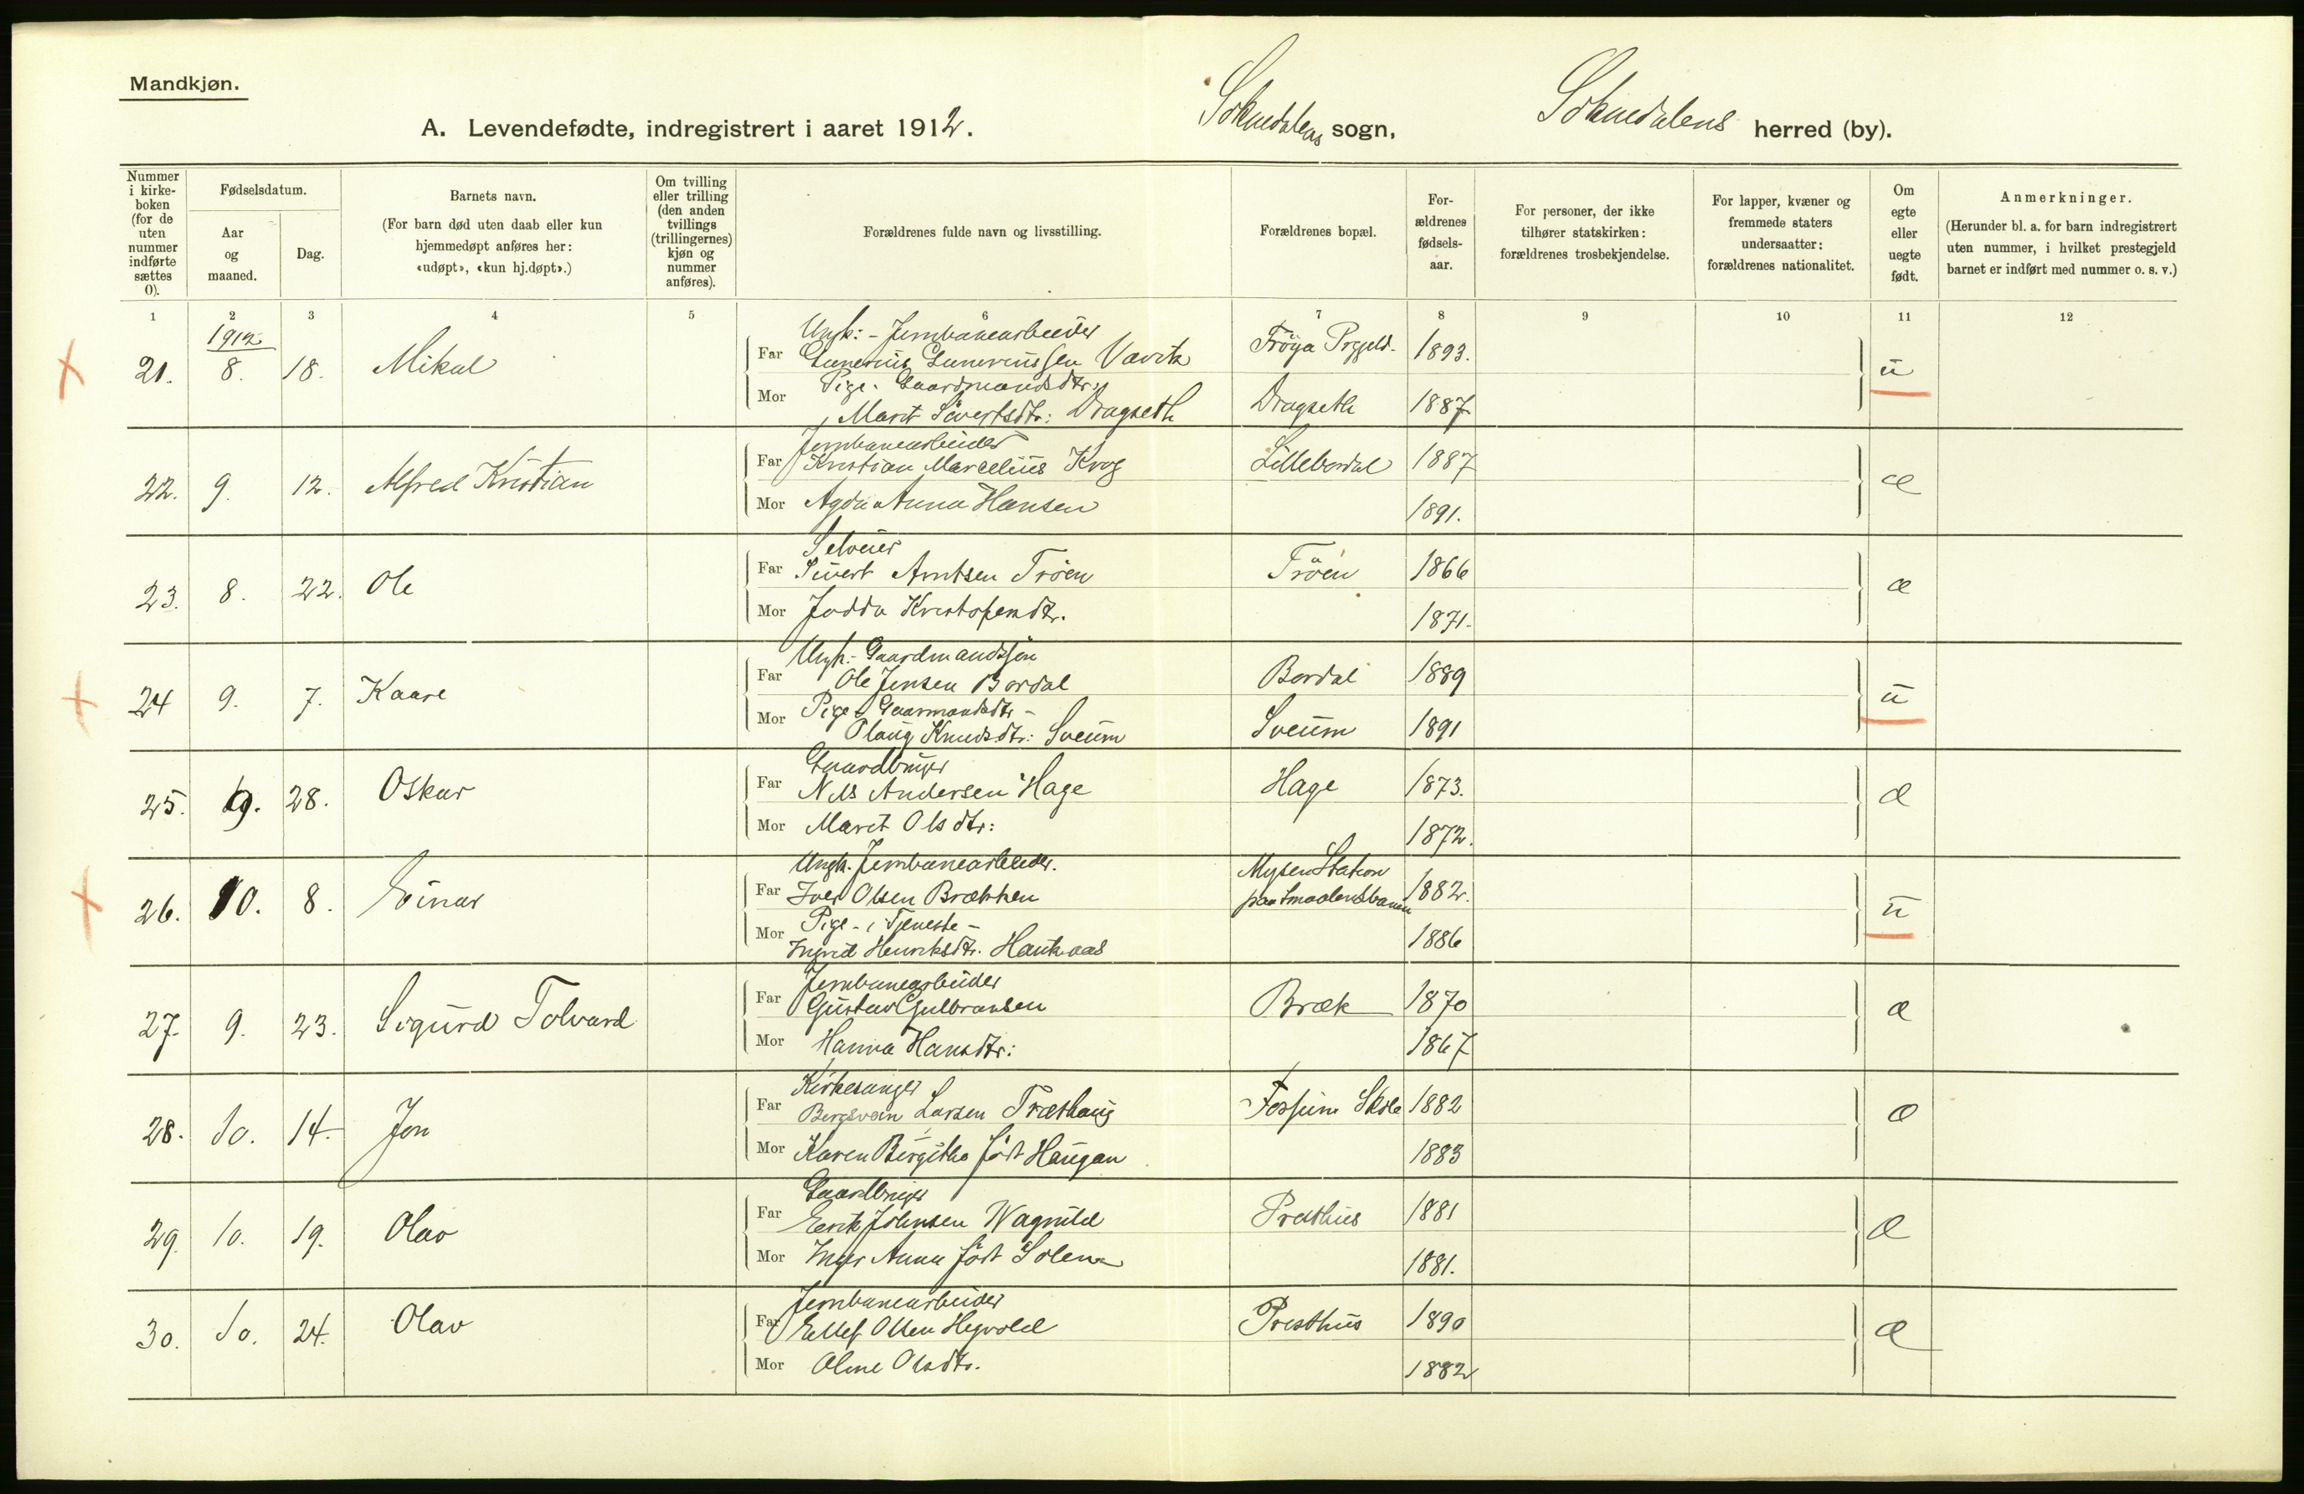 Mandkjøn.
A. Levendefødte, indregistrert i aaret 1912. Soknedalens sogn, Soknedalens herred (by).
Nummer i kirke-boken (for de uten nummer indførte sættes 0).
Fødselsdatum.
Aar og maaned.
Dag.
Barnets navn.
(For barn død uten daab eller kun hjemmedøpt anføres her: «udøpt», «kun hj.døpt».)
Om tvilling eller trilling (den anden tvillings (trillingernes) kjøn og nummer anføres).
Forældrenes fulde navn og livsstilling.
Forældrenes bopæl.
For-ældrenes fødsels-aar.
For personer, der ikke tilhører statskirken: forældrenes trosbekjendelse.
For lapper, kvæner og fremmede staters undersaatter: forældrenes nationalitet.
Om egte eller uegte født.
Anmerkninger.
(Herunder bl. a. for barn indregistrert uten nummer, i hvilket prestegjeld barnet er indført med nummer o. s. v.)
1 2 3 4 5 6 7 8 9 10 11 12
1912
Ungk: - Jernbanearbeider
21. 8. 18. Mikal Far Gunerius Guneriussen Vavik Fröya Prgjeld. 1893. u
Pige. Gaardmandsdtr:
Mor Marit Sivertsdtr: Dragseth Dragseth 1887.
Jernbanearbeider
22. 9. 12. Alfred Kristian Far Kristian Marcelius Krog Lillebordal 1887 æ
Mor Agda Anna Hansen 1891.
Selveier
23. 8. 22. Ole Far Sivert Arntsen Tröen Tröen 1866 æ
Mor Jodda Kristofersdtr. 1871.
Ungk:- Gaardmandssøn
24 9. 7. Kaare Far Ole Jensen Bordal Bordal 1889 u
Pige - Gaarmandsdtr -
Mor Olaug Knudsdtr: Sveum Sveum 1891
Gaardbruger
25. 9. 28. Oskar Far Nils Andersen Hage Hage 1873. æ
Mor Marit Olsdtr: 1872.
Ungk. Jernbanearbeider. Mysen Station
26. 10. 8. Einar Far Iver Olsen Brækken paa Smaalensbanen 1882. u
Pige - i Tjeneste -
Mor Ingrid Henriksdtr. Haukaas 1886
Jernbanearbeider
27. 9. 23. Sigurd Tolvard Far Gustav Gulbransen Bræk 1870 æ
Mor Hanna Hansdtr: 1867
Kirkesanger
28. 10. 14. Jon Far Bergsvein Larsen Træthaug Fossum Skole 1882 æ
Mor Karen Birgitha født Haugan 1883
Gaardbruger
29. 10. 19. Olav Far Eerik Johnsen Wagnild Presthus 1881 æ
Mor Inger Anna født Solem 1881.
Jernbanearbeider
30. 10. 24. Olav Far Ellef Olsen Hegvold Presthus 1890 æ
Mor Oline Olsdtr. 1882